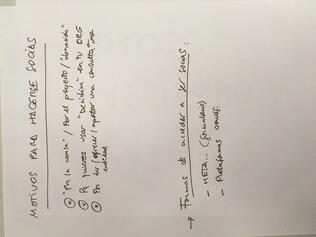 MOTIVOS PARA HACERSE SOCIAS
* "Por la causa" / Por el proyecto / "donación"
* quieres usar "Decidim" en tu ORG
* Por dar / ofrecer / aportar una consulta a una
entidad
→ Formas de acceder a ser socias:
- META... (formulario)
- Plataformas